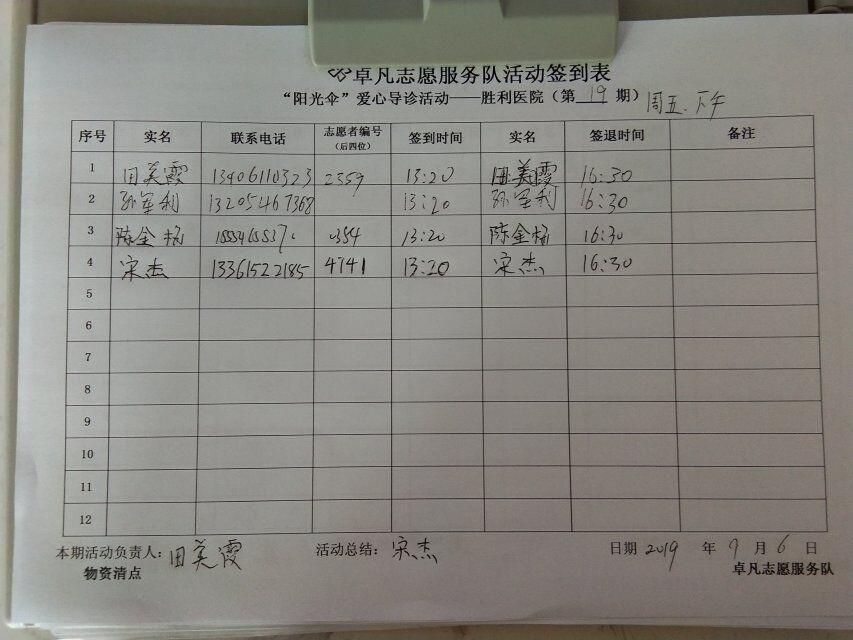 卓凡志愿服务队活动签到表
“阳光伞”爱心导诊活动——胜利医院（第 19 期） 周五.下午
序号 实名 联系电话 志愿者编号（后四位） 签到时间 实名 签退时间 备注
1 田美霞 13406110323 2359 13:20 田美霞 16:30
2 孙军利 13205467368 13:20 孙军利 16:30
3 陈金 0354 13:20 陈金 16:30
4 宋杰 13361522185 4741 13:20 宋杰 16:30
5
6
7
8
9
10
11
12
本期活动负责人：田美霞 活动总结：宋杰 日期 2019 年 9 月 6 日
物资清点 卓凡志愿服务队